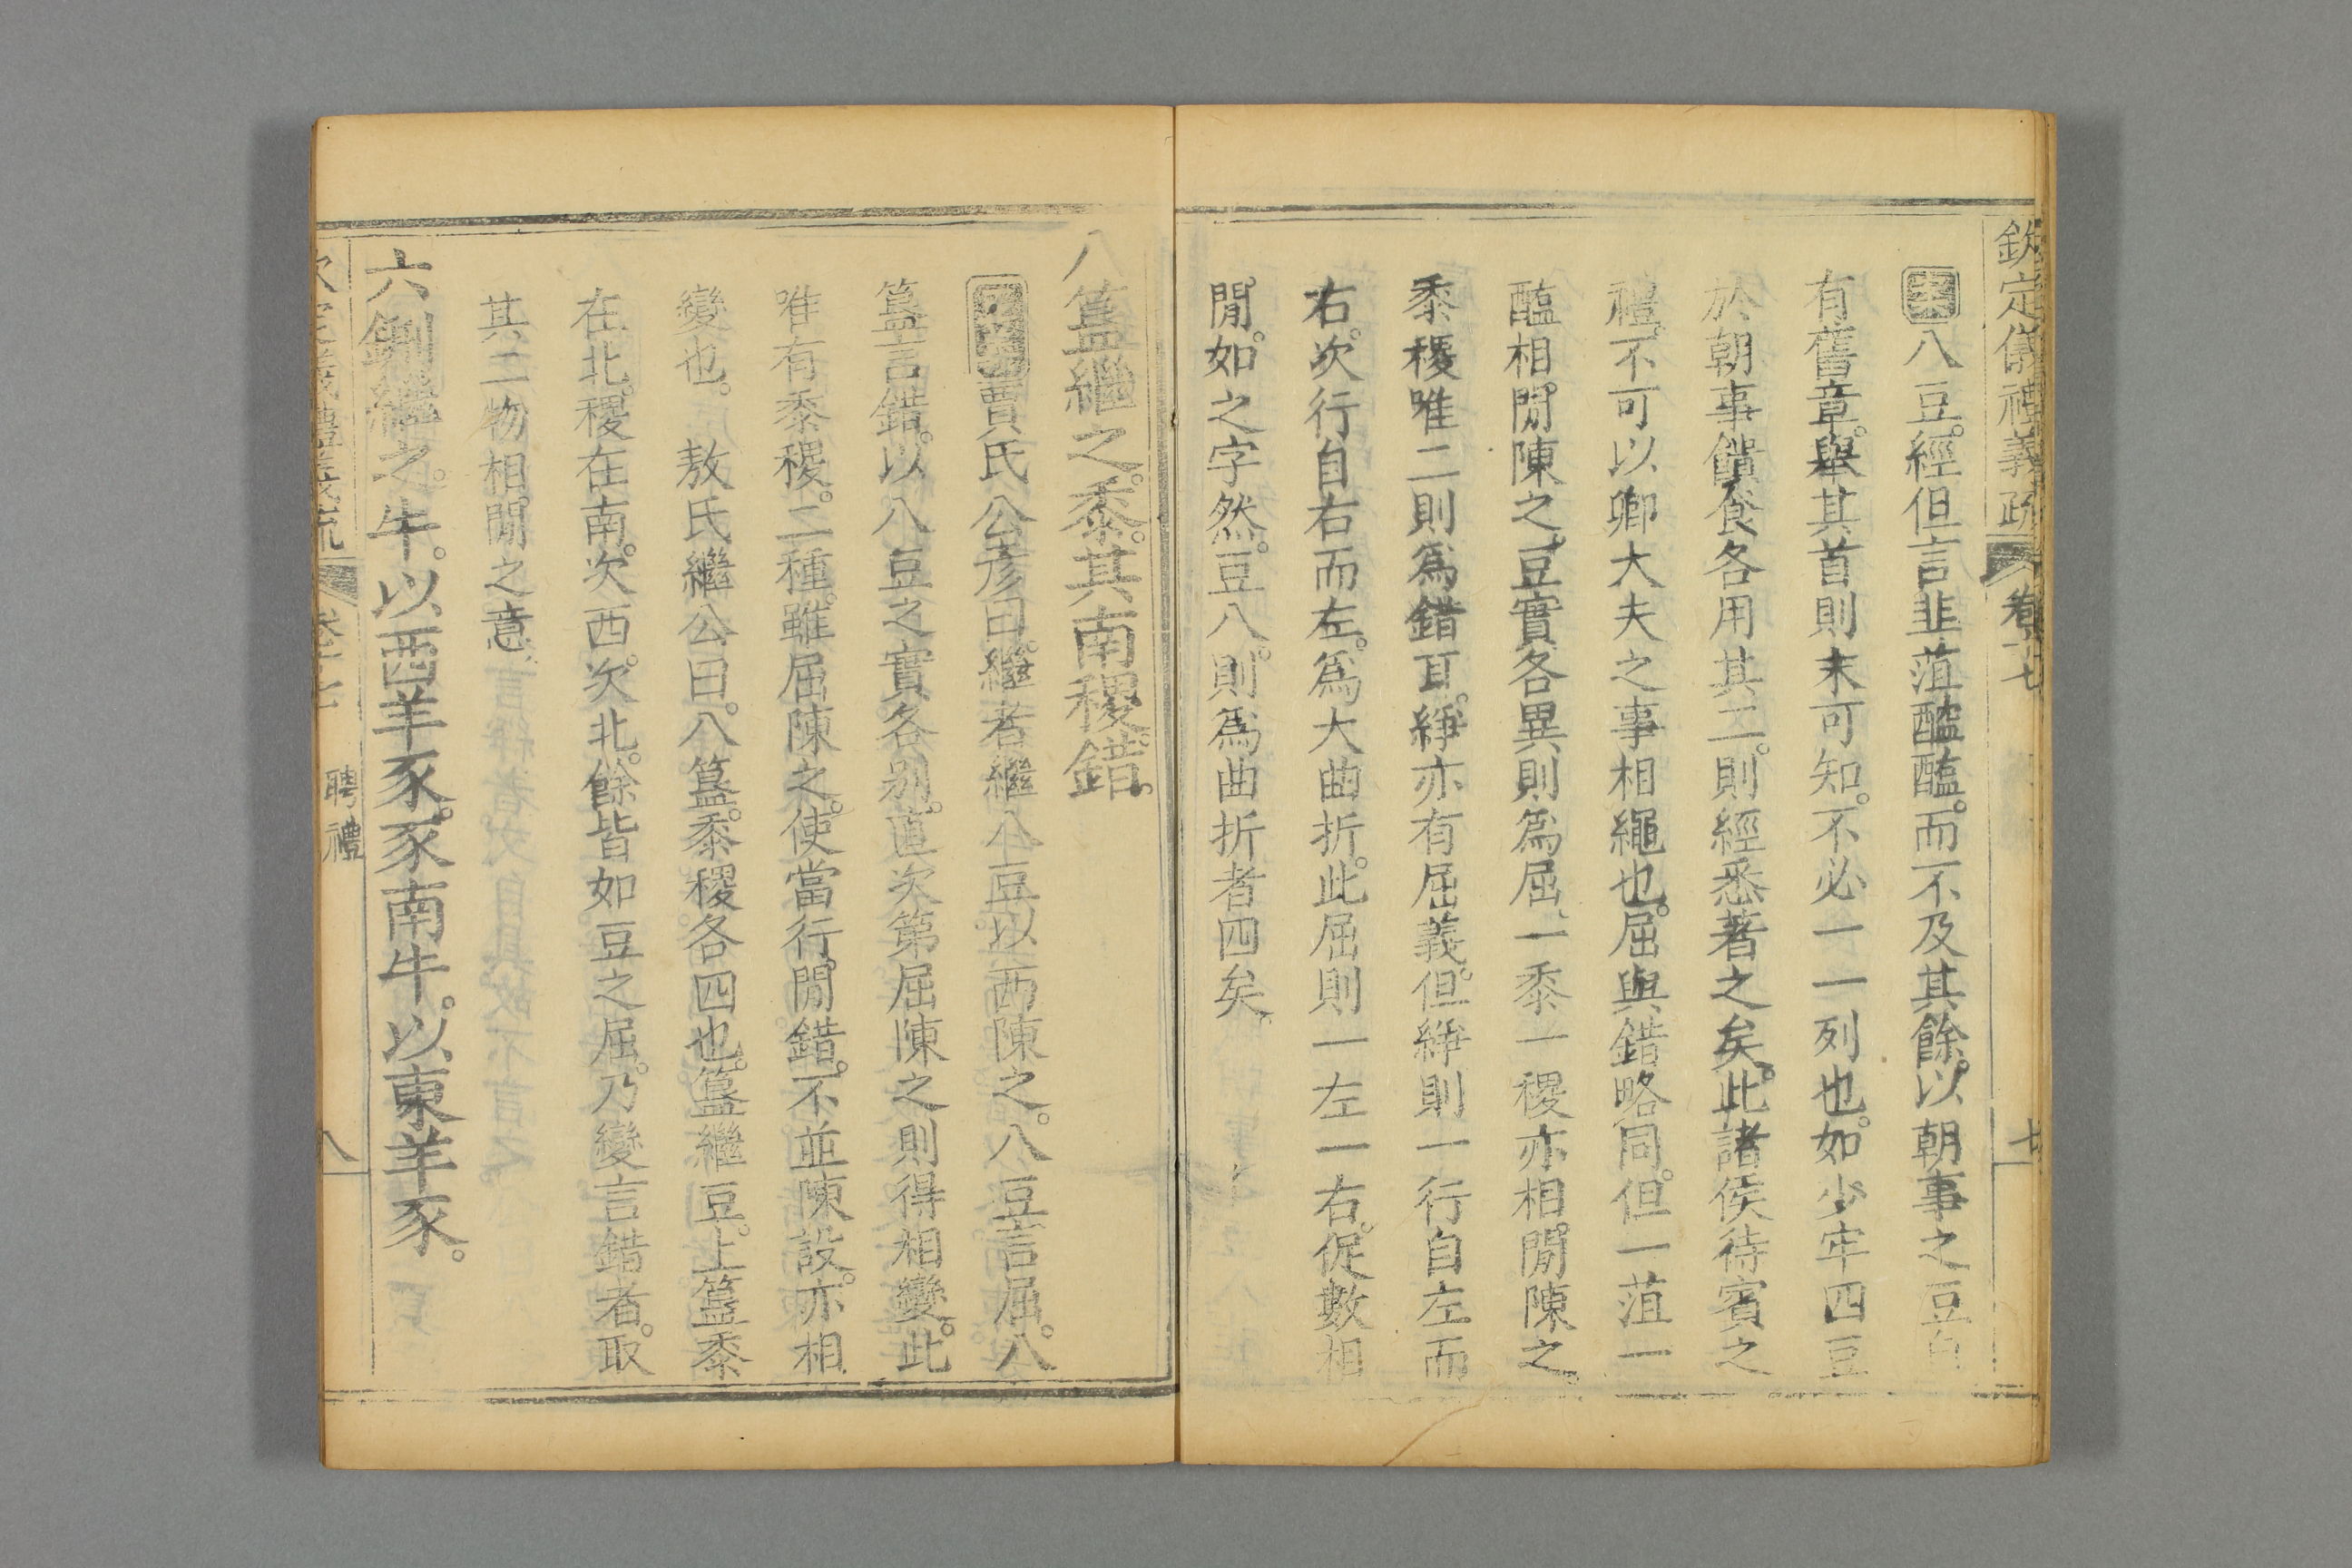 欽定儀禮義疏 卷十七 七
案八豆。經但言韭菹醓醢。而不及其餘。以朝事之豆自
有舊章。舉其首則末可知。不必一一列也。如少牢四豆
於朝事饋食各用其二。則經悉著之矣。此諸侯待賓之
禮。不可以卿大夫之事相繩也。屈與錯略同。但一菹一
醢相閒陳之。豆實各異則為屈。一黍一稷亦相閒陳之。
黍稷唯二則為錯耳。綪亦有屈義。但綪則一行自左而
右。次行自右而左。為大曲折。此屈則一左一右。促數相
閒。如之字然。豆八。則為曲折者四矣。
八簋繼之。黍。其南稷。錯。
賈氏公彥曰。繼者繼八豆以西陳之。八豆言屈。八
簋言錯。以八豆之實各別。直次第屈陳之則得相變。此
唯有黍稷。二種。雖屈陳之。使當行。閒錯。不並陳設。亦相
變也。 敖氏繼公曰。八簋。黍稷各四也。簋繼豆。上簋黍
在北。稷在南。次西。次北。餘皆如豆之屈。乃變言錯者。取
其二物相閒之意。
六鉶繼之。牛。以西羊豕。豕南牛。以東羊豕。
欽定儀禮義疏 卷十七 聘禮 八